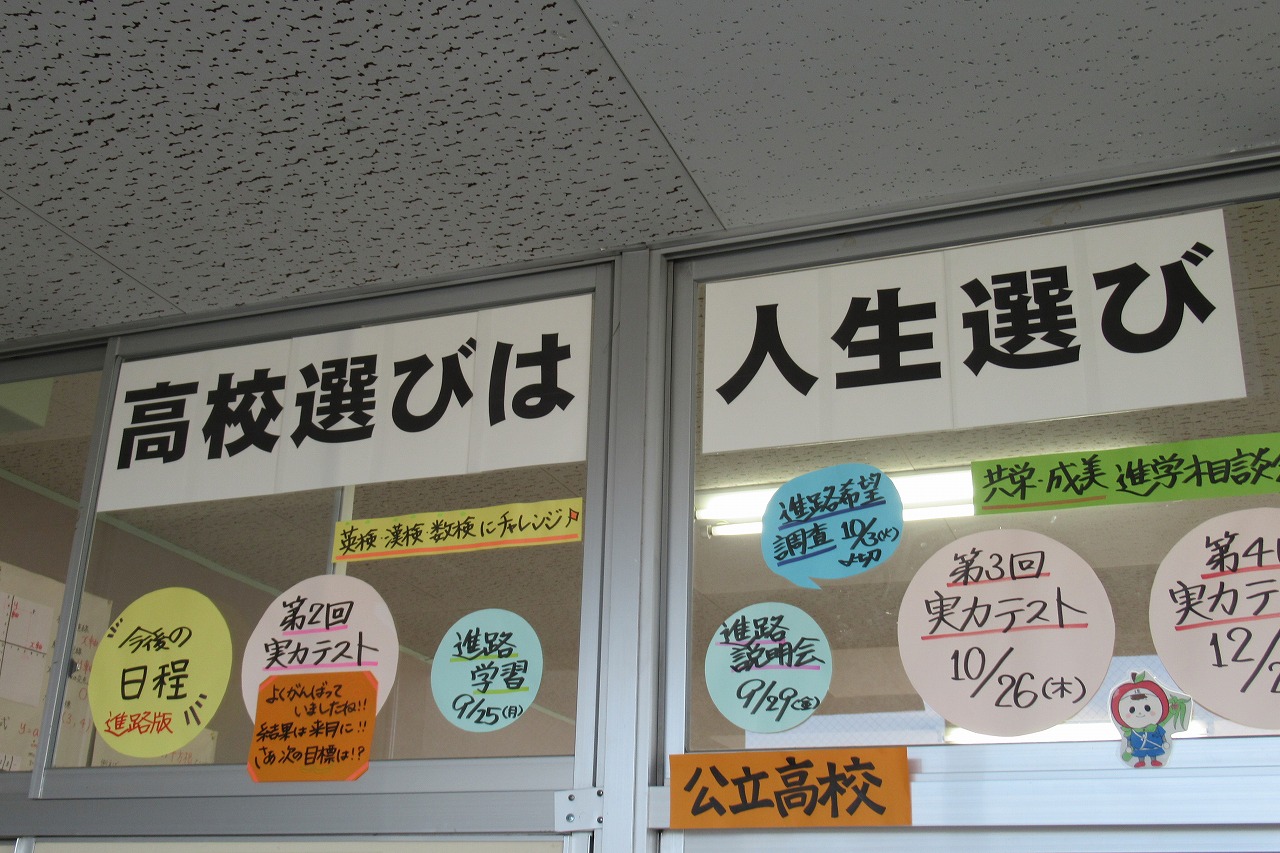 高校選びは
人生選び
英検・漢検・数検にチャレンジ♪
今後の
日程
進路版
第2回
実力テスト
よくがんばって
いましたね!!
結果は来月に!!
さぁ次の目標は!?
進路
学習
9/25(月)
進路希望
調査 10/3(火)
〆切
共栄・成美 進学相談会
進路
説明会
9/29(金)
第3回
実力テスト
10/26(木)
第4
実力テ
12/2
公立高校